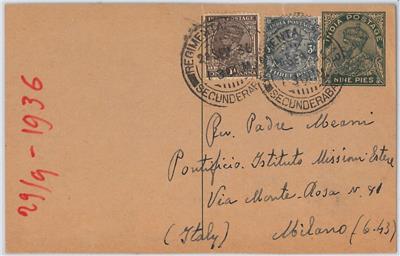 INDIA POSTAGE
NINE PIES
INDIA POSTAGE
1A ANNA
INDIA POSTAGE
3a THREE
REGIMENTAL
SECUNDERABAD
SECUNDERABAD
29/9-1936
Rev. Padre Meani
Pontificio Istituto Missioni Estere
Via Monte Rosa N. 81
(Italy) Milano (6.43)